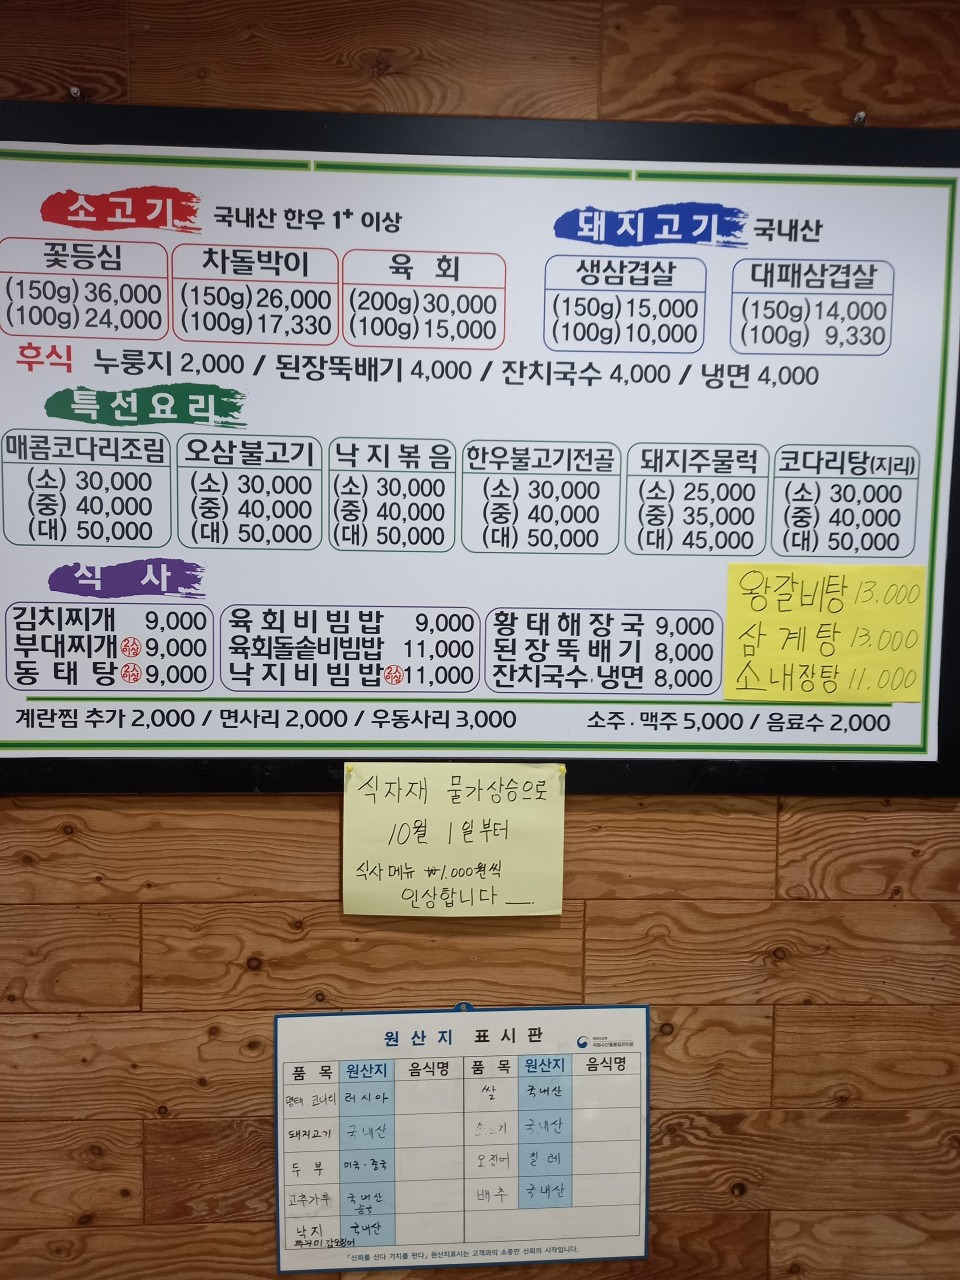 소고기 국내산 한우 1+ 이상
꽃등심
(150g) 36,000
(100g) 24,000
차돌박이
(150g) 26,000
(100g) 17,330
육 회
(200g) 30,000
(100g) 15,000
돼지고기 국내산
생삼겹살
(150g) 15,000
(100g) 10,000
대패삼겹살
(150g) 14,000
(100g) 9,330
후식 누룽지 2,000 / 된장뚝배기 4,000 / 잔치국수 4,000 / 냉면 4,000
특선요리
매콤코다리조림
(소) 30,000
(중) 40,000
(대) 50,000
오삼불고기
(소) 30,000
(중) 40,000
(대) 50,000
낙지볶음
(소) 30,000
(중) 40,000
(대) 50,000
한우불고기전골
(소) 30,000
(중) 40,000
(대) 50,000
돼지주물럭
(소) 25,000
(중) 35,000
(대) 45,000
코다리탕(지리)
(소) 30,000
(중) 40,000
(대) 50,000
식 사
김치찌개 9,000
부대찌개 2인이상 9,000
동태탕 2인이상 9,000
육회비빔밥 9,000
육회돌솥비빔밥 11,000
낙지비빔밥 2인이상 11,000
황태해장국 9,000
된장뚝배기 8,000
잔치국수·냉면 8,000
왕갈비탕 13.000
삼계탕 13.000
소내장탕 11.000
계란찜 추가 2,000 / 면사리 2,000 / 우동사리 3,000
소주·맥주 5,000 / 음료수 2,000
식자재 물가상승으로
10월 1일부터
식사 메뉴 ₩1.000원씩
인상합니다
원산지 표시판
품 목 원산지 음식명 품 목 원산지 음식명
명태 코다리 러시아 쌀 국내산
돼지고기 국내산 소고기 국내산
두부 미국·중국 오징어 칠레
고추가루 국내산 배추 국내산
중국
낙지 국내산
쭈꾸미 갑오징어
「신뢰를 산다 가치를 판다」 원산지표시는 고객과의 소중한 신뢰의 시작입니다.